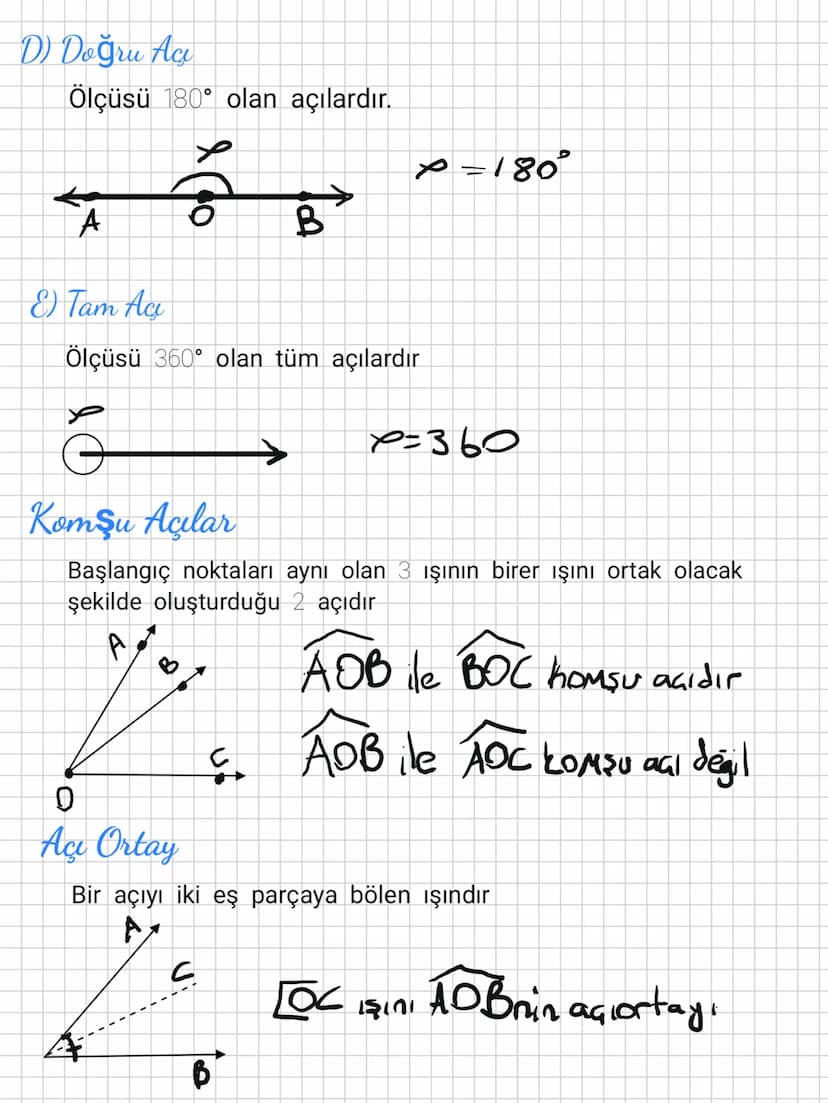 D) Doğru Açı
Ölçüsü 180° olan açılardır.
α
α = 180°
A O B
E) Tam Açı
Ölçüsü 360° olan tüm açılardır
α
α = 360
Komşu Açılar
Başlangıç noktaları aynı olan 3 ışının birer ışını ortak olacak
şekilde oluşturduğu 2 açıdır
A
B
C
O
AOB ile BOC komşu açıdır
AOB ile AOC komşu açı değil
Açı Ortay
Bir açıyı iki eş parçaya bölen ışındır
A
C
B
[OC ışını AOBnin açıortayı